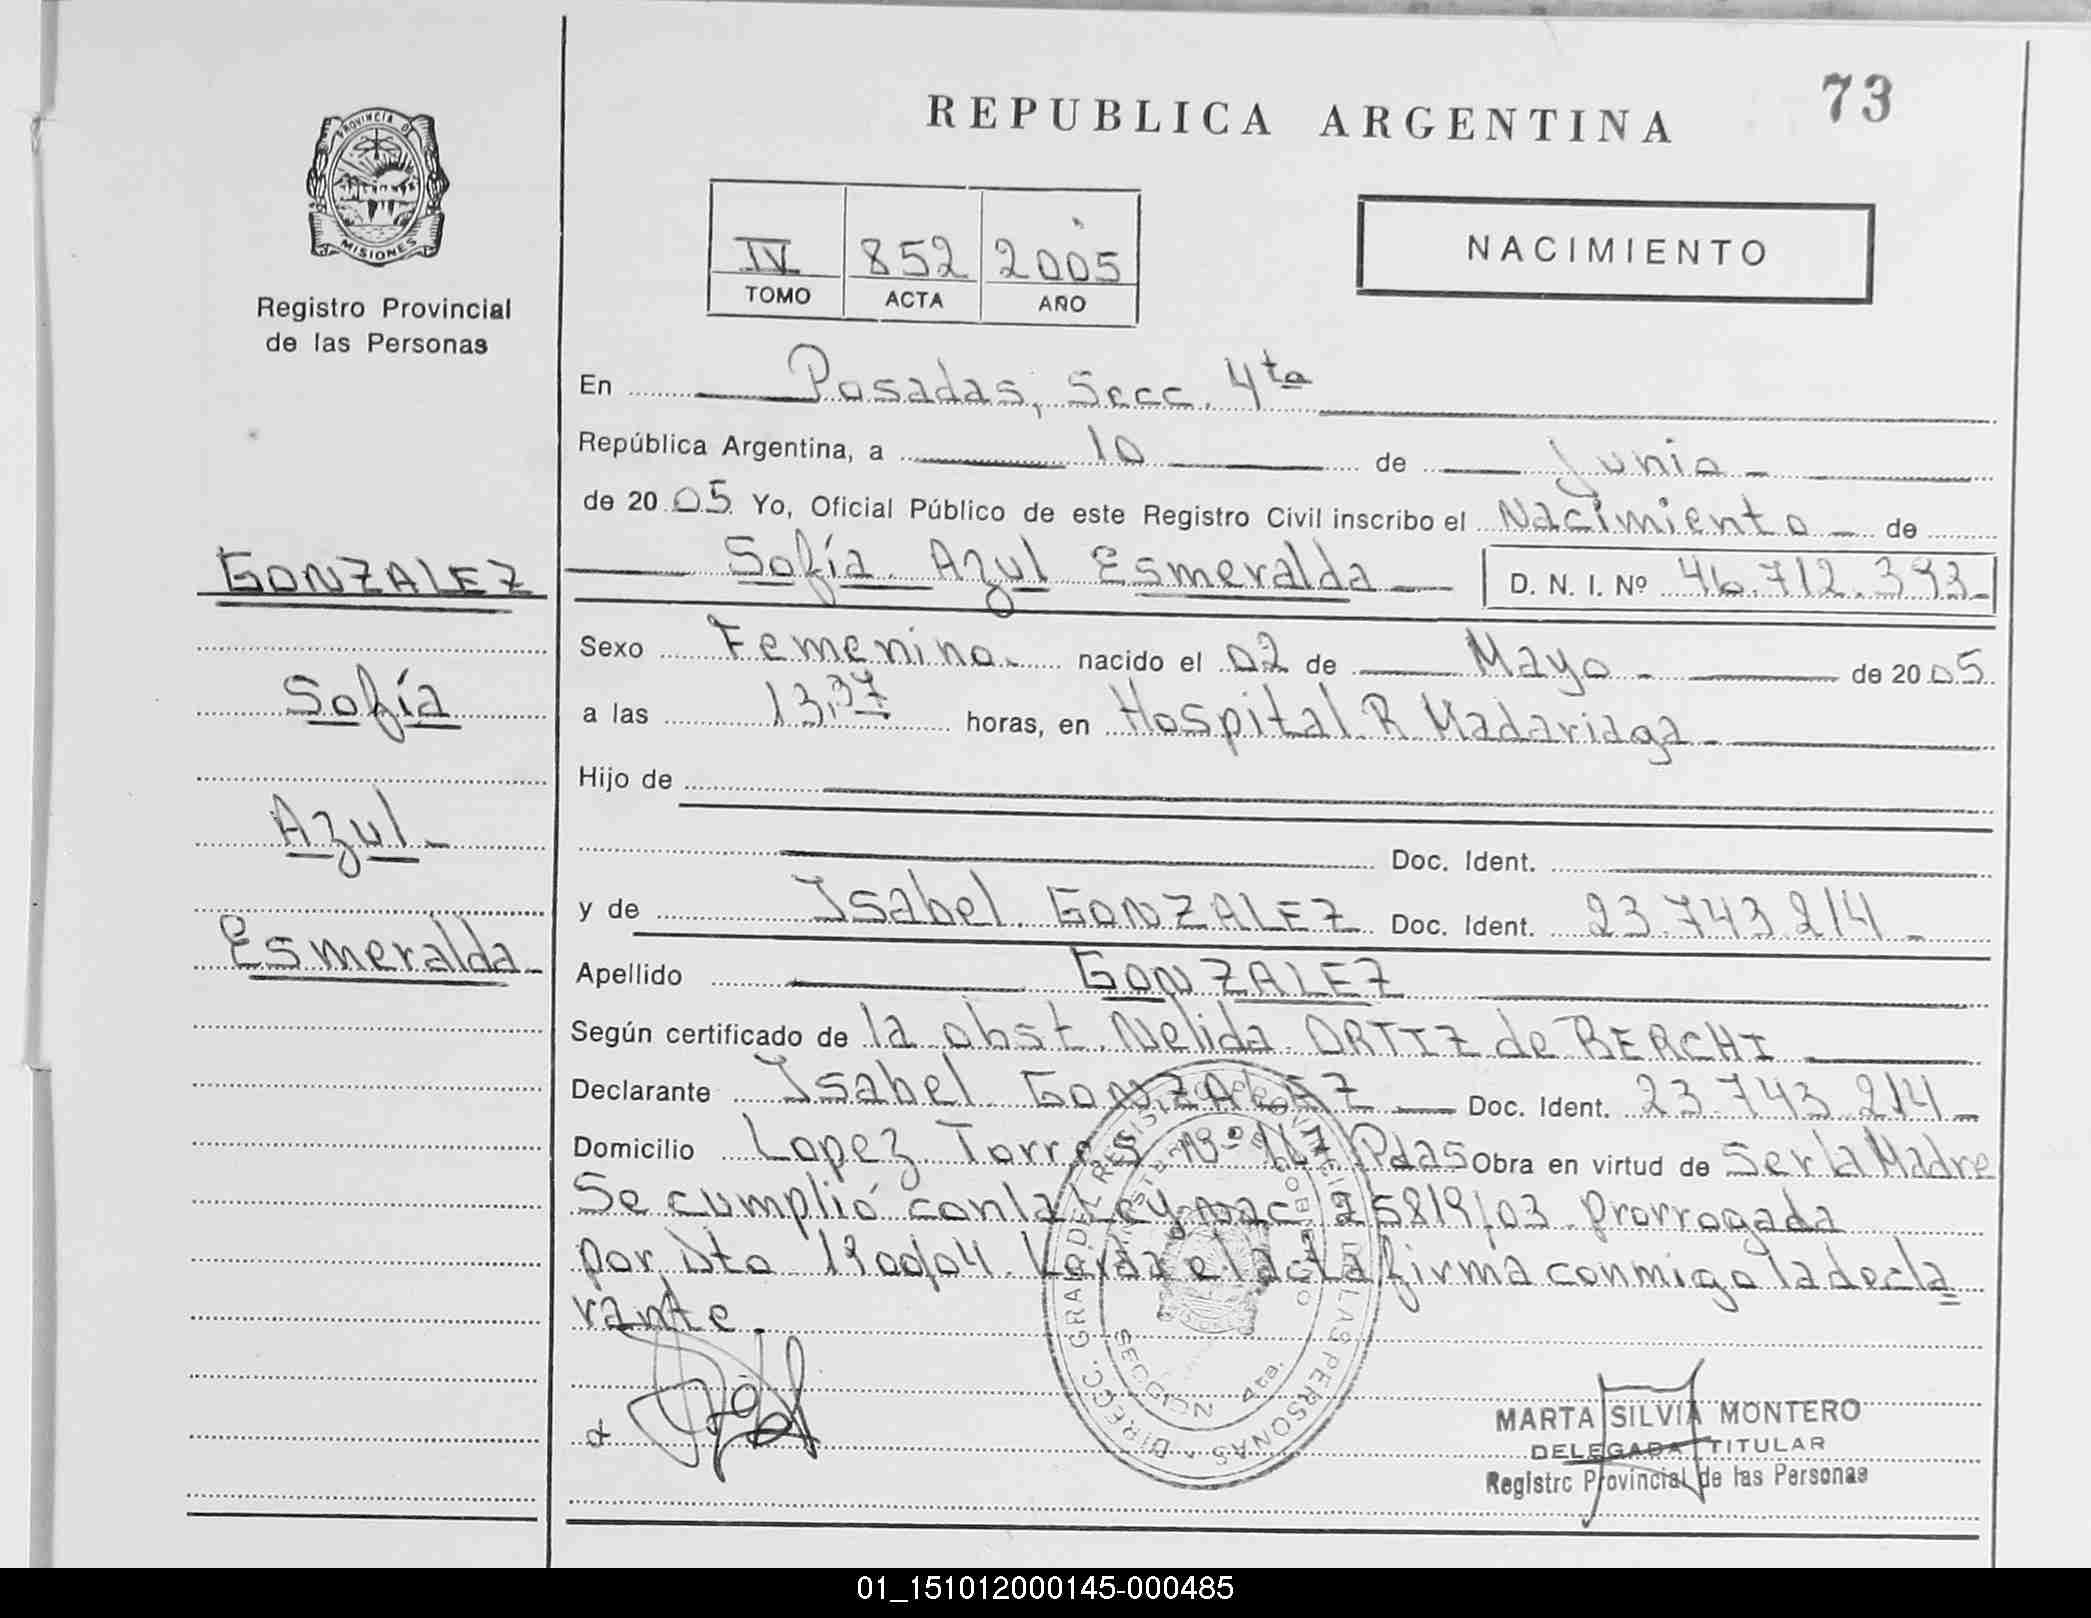 REPUBLICA ARGENTINA
73
PROVINCIA DE
MISIONES
Registro Provincial
de las Personas
IV 852 2005
TOMO ACTA AÑO
NACIMIENTO
En Posadas, Secc. 4ta
República Argentina, a 10 de Junio
de 2005 Yo, Oficial Público de este Registro Civil inscribo el Nacimiento de
Sofía Azul Esmeralda D. N. I. Nº 46.712.393
Sexo Femenino nacido el 02 de Mayo de 2005
a las 13,37 horas, en Hospital R Madariaga
Hijo de
Doc. Ident.
y de Isabel GONZALEZ Doc. Ident. 23.743.214
Apellido GONZALEZ
Según certificado de la obst. Nelida ORTIZ de BERCHI
Declarante Isabel GONZALEZ Doc. Ident. 23.743.214
Domicilio Lopez Torres Nº 117 Pdas Obra en virtud de Ser la Madre
Se cumplió con la Ley nac 25819/03 Prorrogada
por Dto 1900/04. Leida el acta firma conmigo la decla
rante.
GONZALEZ
Sofía
Azul
Esmeralda
SECCION 4ta.
MARTA SILVIA MONTERO
DELEGADA TITULAR
Registro Provincial de las Personas
01_151012000145-000485